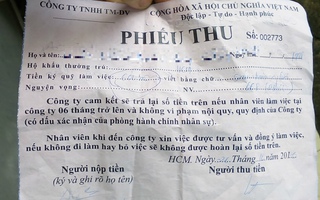 CÔNG TY TNHH TM-DV
CỘNG HÒA XÃ HỘI CHỦ NGHĨA VIỆT NAM
Độc lập - Tự do - Hạnh phúc
PHIẾU THU Số: 002773
Họ và tên:
Hộ khẩu thường trú:
Tiền ký quỹ làm việc: viết bằng chữ
Nguyện vọng: NV.
Công ty cam kết sẽ trả lại số tiền trên nếu nhân viên làm việc tại
công ty 06 tháng trở lên và không vi phạm nội quy, quy định của Công ty
(có dấu xác nhận của phòng hành chính nhân sự).
Nhân viên khi đến công ty xin việc được tư vấn và đồng ý làm việc,
nếu không đi làm hay bỏ việc sẽ không được hoàn lại số tiền trên.
HCM, Ngày Tháng năm 201
Người nộp tiền
Người thu tiền
(ký và ghi rõ họ tên)